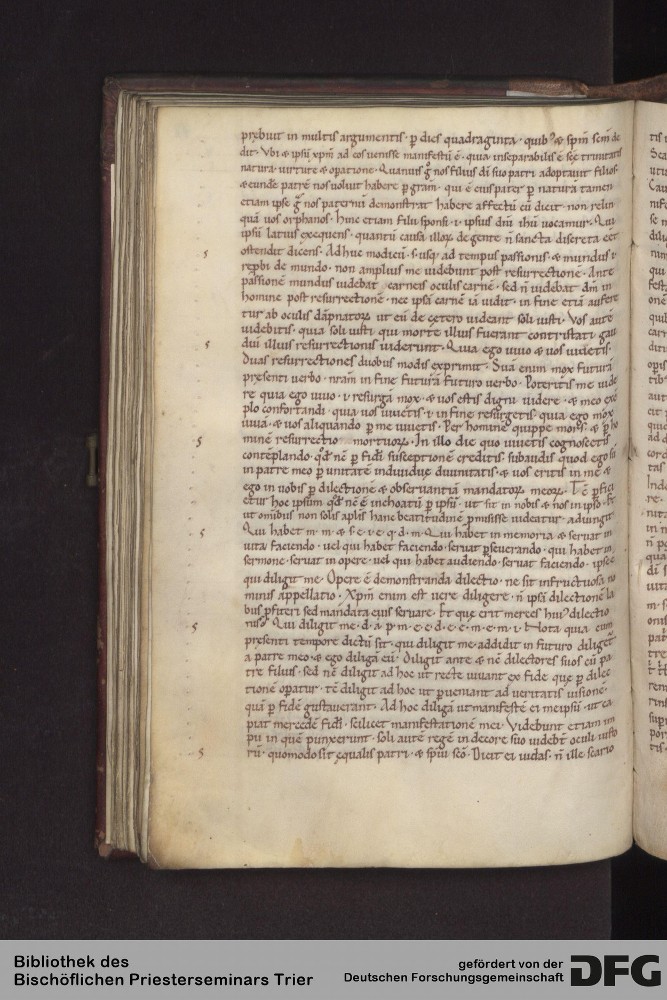 prebuit in multis argumentis · ꝑ dies quadraginta · quib; & spm̄ scm̄ de
dit · Vbi & ipsū xpm̄ ad eos uenisse manifestū ē · quia inseparabilis ē scē trinitatis
natura · uirtute & oꝑatione · Quamuis g° nos filius dī suo patri adoptauit filios
& eundē patrē nos uoluit habere ꝑ gram̄ · qui ē eius pater ꝑ natura tamen
etiam ipse nos paternū demonstrat habere affectū cū dicit · non relin
quā uos orphanos · hinc etiam filii sponsi · ipsius dn̄i ihu uocamur · Qui
ipsū latius exequens · quantū causa illoꝝ de gente n̄ sancta discreta eēt
ostendit dicens · Adhuc modicū · s · usq; ad tempus passionis & mundus
reꝓbi de mundo · non amplius me uidebunt post resurrectionē · Ante
passionē mundus uidebat carneis oculis carnē · sed n̄ uidebat dn̄m in
homine post resurrectionē · nec ipsā carnē iā uidit · in fine etiā aufere
tur ab oculis dāpnatoꝝ ut eū de cetero uideant soli iusti · Vos autē
uidebitis · quia soli iusti qui morte illius fuerant contristati · gau
dui illius resurrectionis uiderunt · Quia ego uiuo & uos uiuetis ·
Duas resurrectiones duobus modis exprimit · Suā enim mox futurā
presenti uerbo · nram̄ in fine futurā futuro uerbo · Poteritis me uide
re quia ego uiuo · resurgā mox · & uos estis digni uidere · & meo exē
plo confortandi · quia uos uiuetis · in fine resurgetis · quia ego mox
uiuā · & uos aliquando ꝑ me uiuetis · Per hominē quippe mors · & ꝑ ho
minē resurrectio mortuoꝝ · In illo die quo uiuetis cognoscetis
contēplando · qd̄ nc̄ ꝑ fidī susceptionē creditis · subaudis quod ego sū
in patre meo ꝑ unitatē indiuiduę diuinitatis · & uos eritis in me &
ego in uobis ꝑ dilectionē & obseruantiā mandatoꝝ meoꝝ · ꝑfici
etur hoc ipsum qd̄ nc̄ ē inchoatū ꝑ ipsū · ut sit in nobis & nos in ipso · Et
ut omibus non solis aplis hanc beatitudinē ꝓmisisse uideatur · adiungit
Qui habet m · m · & s · e · e · q · d · m · Qui habet in memoria & seruat in
uita faciendo · uel qui habet faciendo · seruat ꝑseuerando · qui habet in
sermone · seruat in opere · uel qui habet audiendo · seruat faciendo · ipse ē
qui diligit me · Opere ē demonstranda dilectio · ne sit infructuosa no
minis appellatio · Xpm̄ enim est uere diligere · n̄ ipsā dilectionē la
bus ꝓfiteri sed mandata eius seruare · Et quę erit merces hui; dilectio
nis · Qui diligit me · d · a · p · m · e · e · d · e · e · m · e · m · i · Nota quia cum
presenti tempore dictū sit · qui diligit me · addidit in futuro diliget
a patre meo · & ego diligā eū · Diligit ante & nc̄ dilectores suos cū pa
tre filius · sed nc̄ diligit ad hoc ut recte uiuant ex fide quę ꝑ dilec
tionē oꝑatur · tc̄ diligit ad hoc ut ꝑueniant ad ueritatis uisionē ·
quā ꝑ fidē gustauerant · Ad hoc diligā ut manifestē ei me ipsū · ut ca
piat mercedē fidī · scilicet manifestationē mei · Videbunt etiam im
pii in quē punxerunt · soli autē regē in decore suo uidebt̄ oculi iusto
rū · quomodo sit ęqualis patri · & spiui sco̅ · Dicit ei iudas · n̄ ille scario
Bibliothek des
Bischöflichen Priesterseminars Trier
gefördert von der
Deutschen Forschungsgemeinschaft
DFG